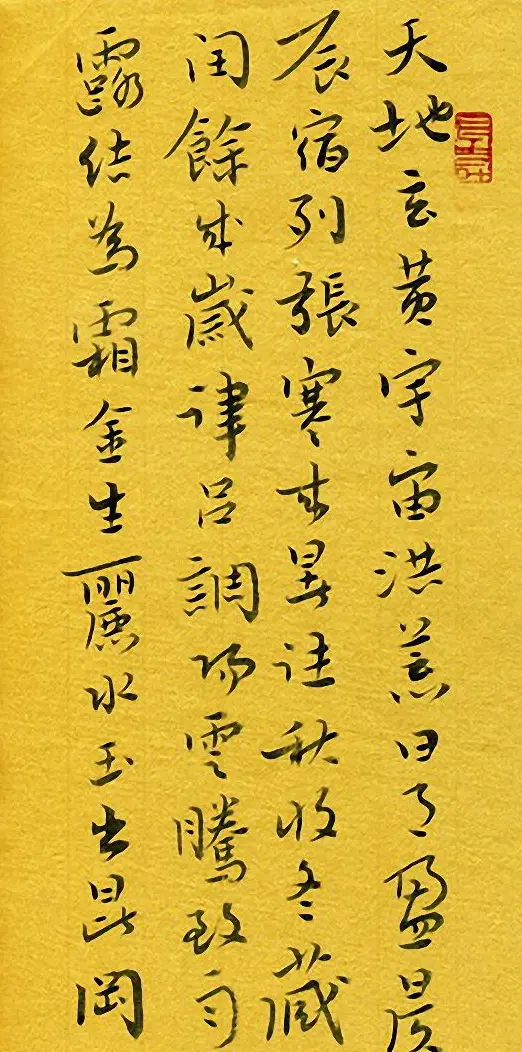 天地玄黄宇宙洪荒日月盈昃
辰宿列張寒来暑往秋收冬藏
閏餘成歲律呂調陽雲騰致雨
露結為霜金生麗水玉出崑岡